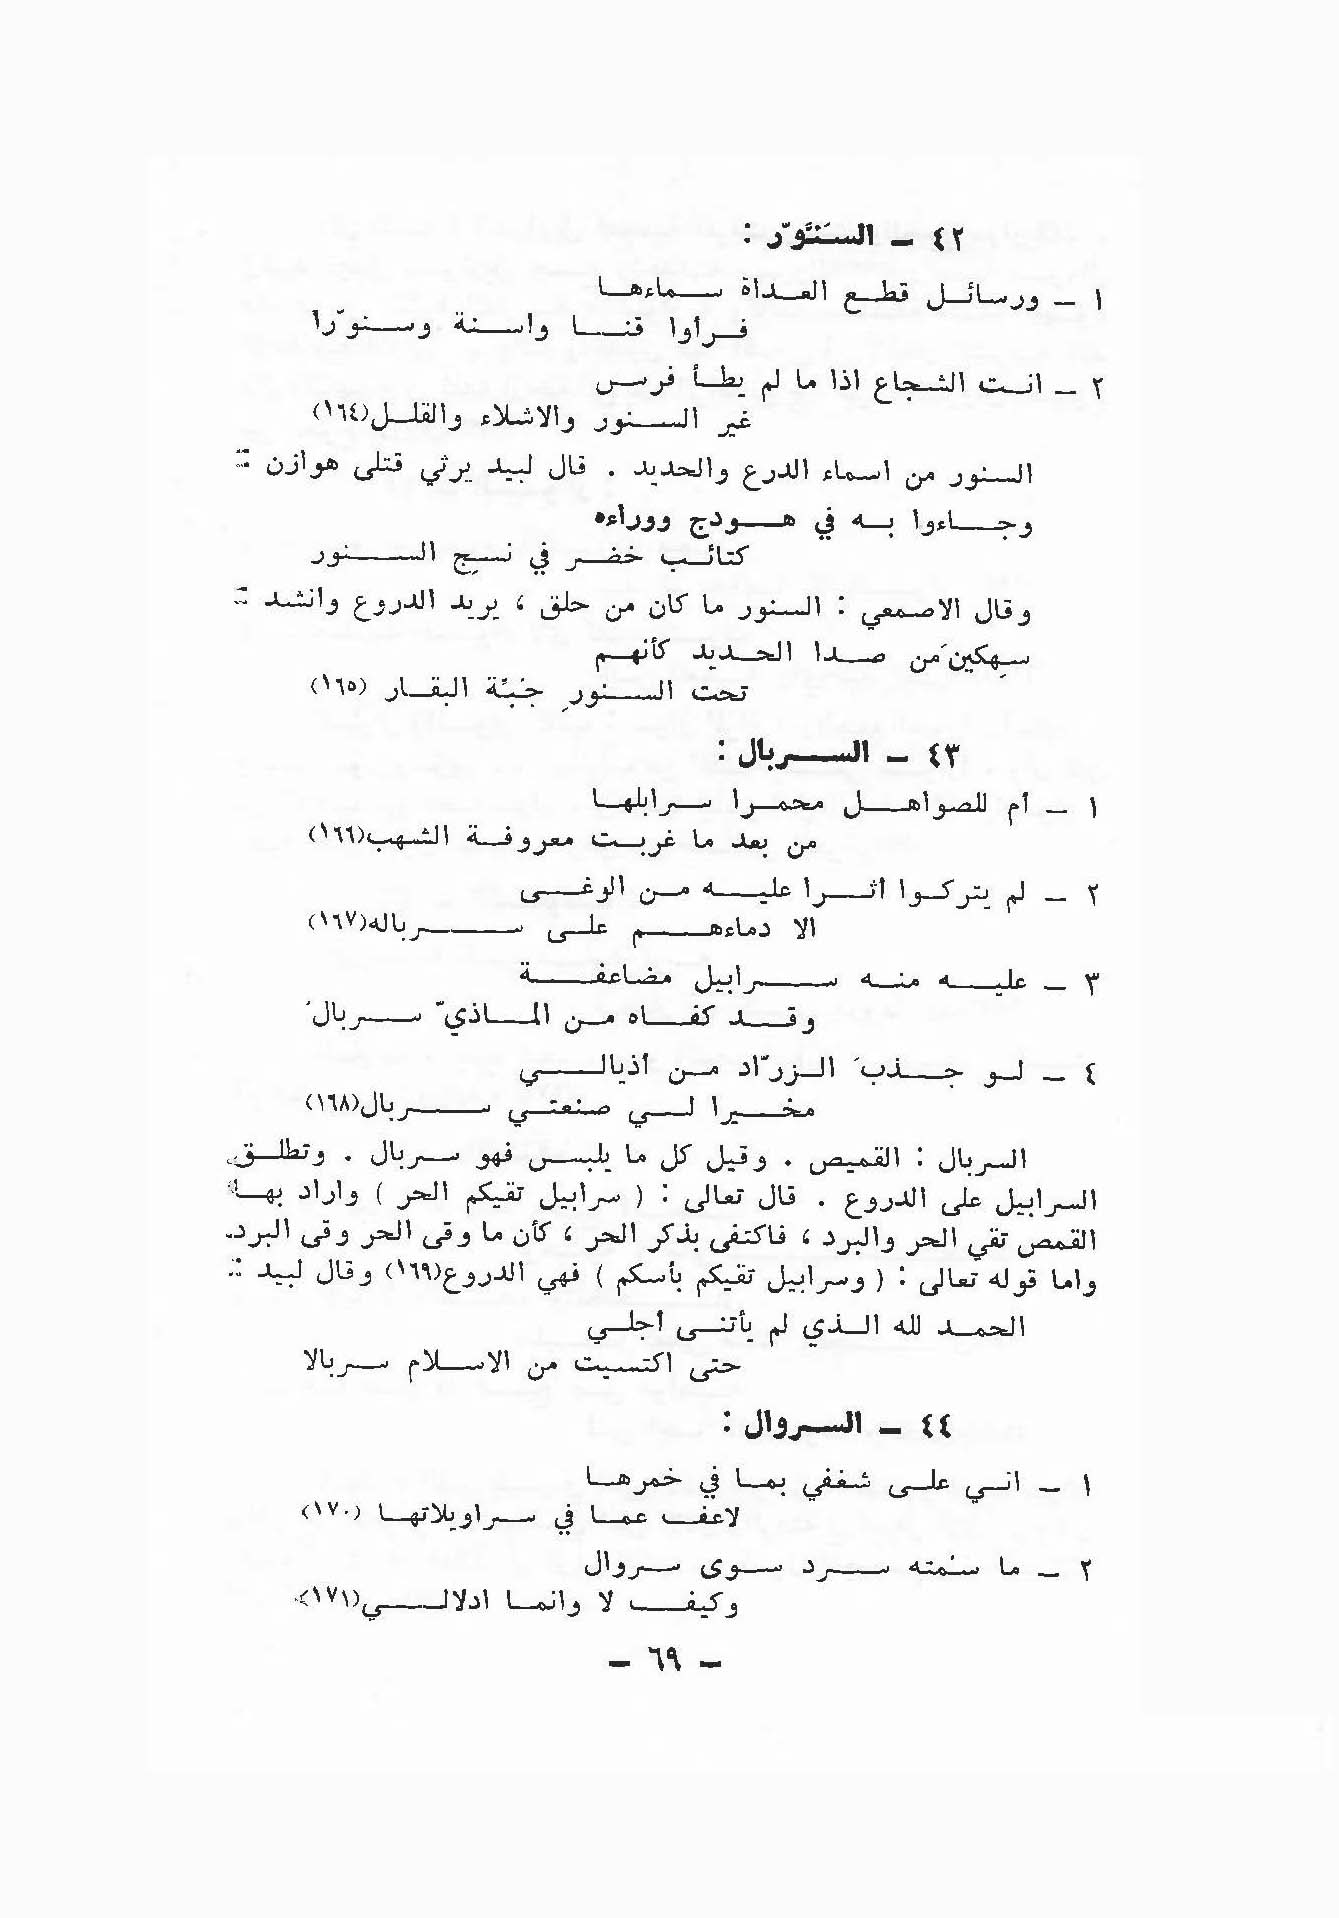 ٤٢ ــ السَنَّوّر :
١ ــ ورسائل قطع العداة سماءها
فرأوا قنا واسنة وسنوّرا
٢ ــ انت الشجاع اذا ما لم يطأ فرس
غير السنور والاشلاء والقلل(١٦٤)
السنور من اسماء الدرع والحديد . قال لبيد يرثي قتلى هوازن :
وجاءوا به في هودج ووراءه
كتائب خضر في نسج السنور
وقال الاصمعي : السنور ما كان من حلق ، يريد الدروع وانشد :
سهِكين َمن صدا الحديد كأنهم
تحت السنورِ جنّة البقار (١٦٥)
٤٣ ــ السربال :
١ ــ أم للصواهل محمرا سرابلها
من بعد ما غربت معروفة الشهب(١٦٦)
٢ ــ لم يتركوا اثرا عليه من الوغى
الا دماءهم على سرباله(١٦٧)
٣ ــ عليه منه سرابيل مضاعفة
وقد كفاه من الماذيّ سربال
٤ ــ لو جذبَ الزرّاد من أذيالي
مخيرا لي صنعتي سربال(١٦٨)
السربال : القميص . وقيل كل ما يلبس فهو سربال . وتطلق
السرابيل على الدروع . قال تعالى : ( سرابيل تقيكم الحر ) واراد بها
القمص تقي الحر والبرد ، فاكتفى بذكر الحر ، كأن ما وقى الحر وقى البرد.
واما قوله تعالى : ( وسرابيل تقيكم بأسكم ) فهي الدروع(١٦٩) وقال لبيد :
الحمد لله الذي لم يأتنى أجلي
حتى اكتسيت من الاسلام سربالا
٤٤ ــ السروال :
١ ــ اني على شغفي بما في خمرها
لاعف عما في سراويلاتها (١٧٠)
٢ ــ ما سمته سرد سوى سروال
وكيف لا وانما ادلالي(١٧١)
ــ ٦٩ ــ